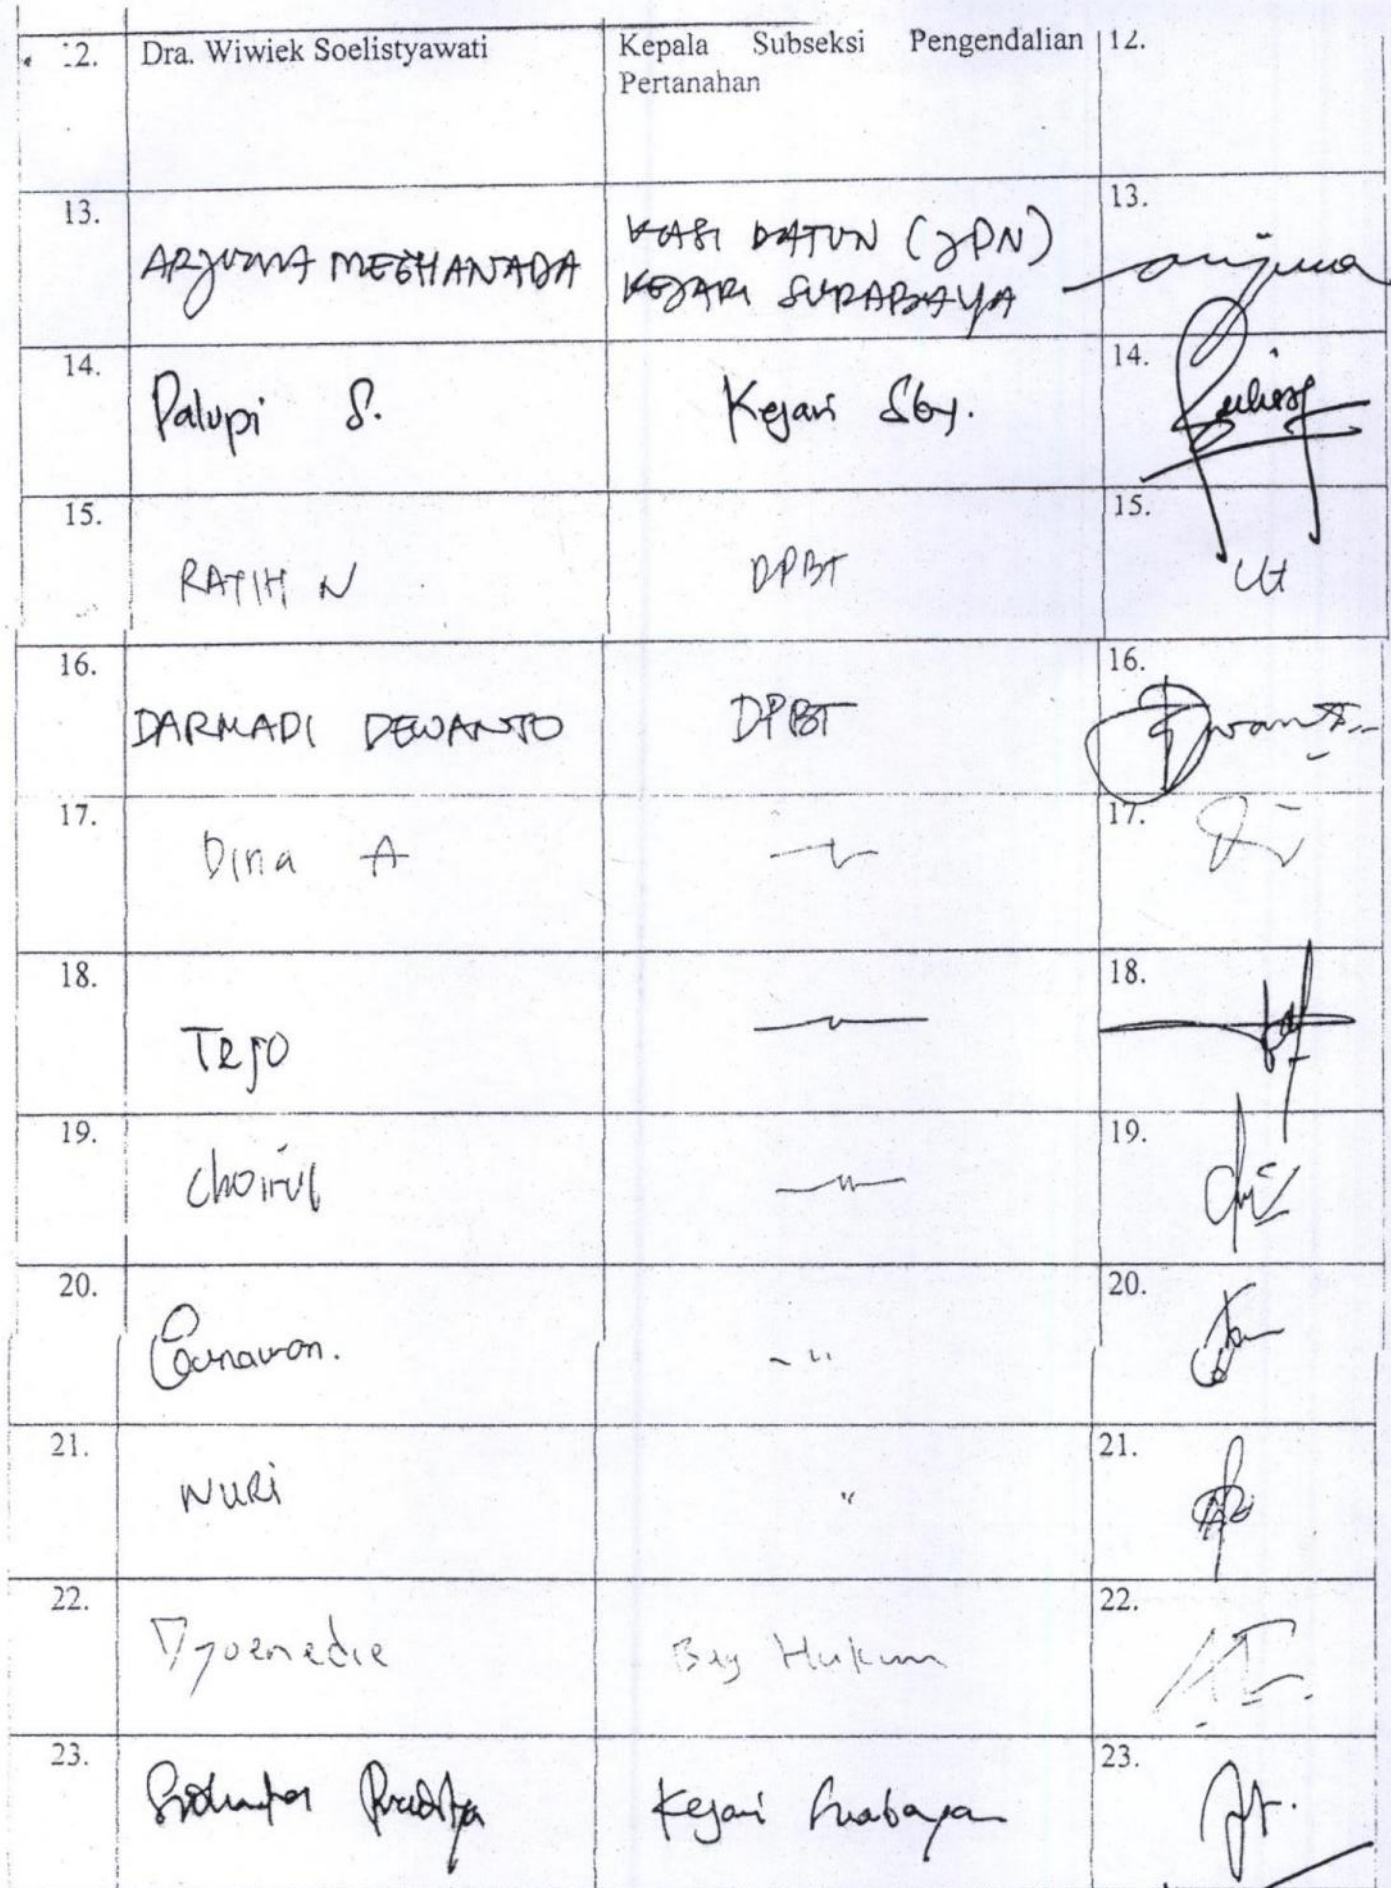 12. Dra. Wiwiek Soelistyawati Kepala Subseksi Pengendalian 12.
Pertanahan
13. 13.
ARJUNA MEGHANADA KASI DATUN (JPN)
KEJARI SURABAYA
14. Palupi S. Kejari Sby. 14.
15. 15.
RATIH N DPBT
16. 16.
DARMADI DEWANTO DPBT
17. 17.
Dina A
18. 18.
Tejo
19. 19.
Choirul
20. 20.
Gunawan. - "
21. 21.
NURi "
22. 22.
Djoenedie Bag Hukum
23. 23.
Kejari Surabaya